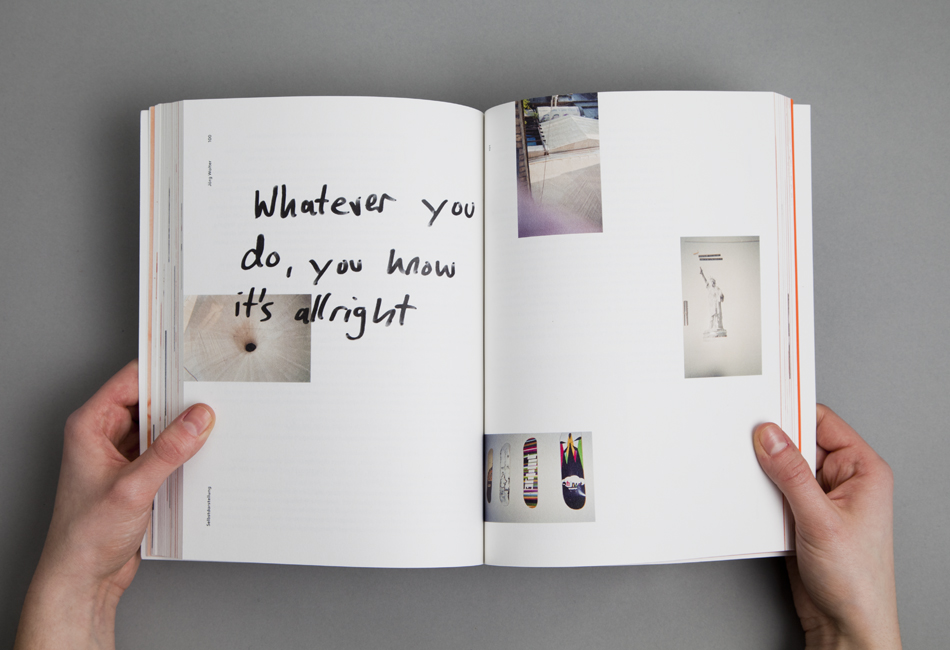 Jörg Walter 100
Whatever you
do, you know
it's allright
Selbstdarstellung